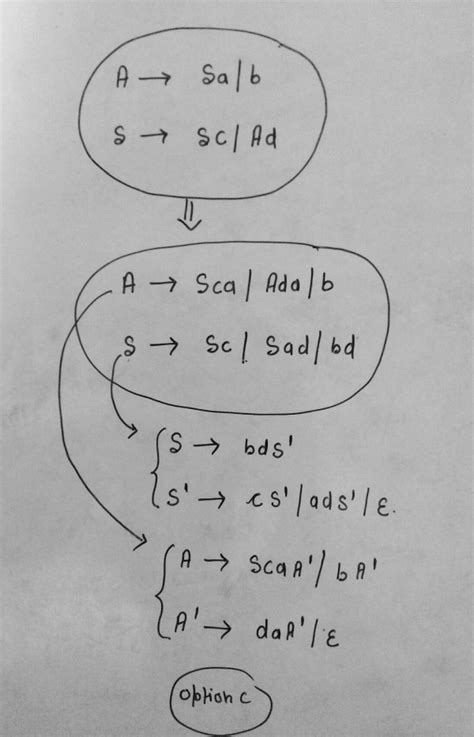 A → Sa/b
S → Sc/Ad
⇓
A → Sca/Ada/b
S → Sc/Sad/bd
S → bdS'
S' → cS'/adS'/ε.
A → ScaA'/bA'
A' → daA'/ε
option c